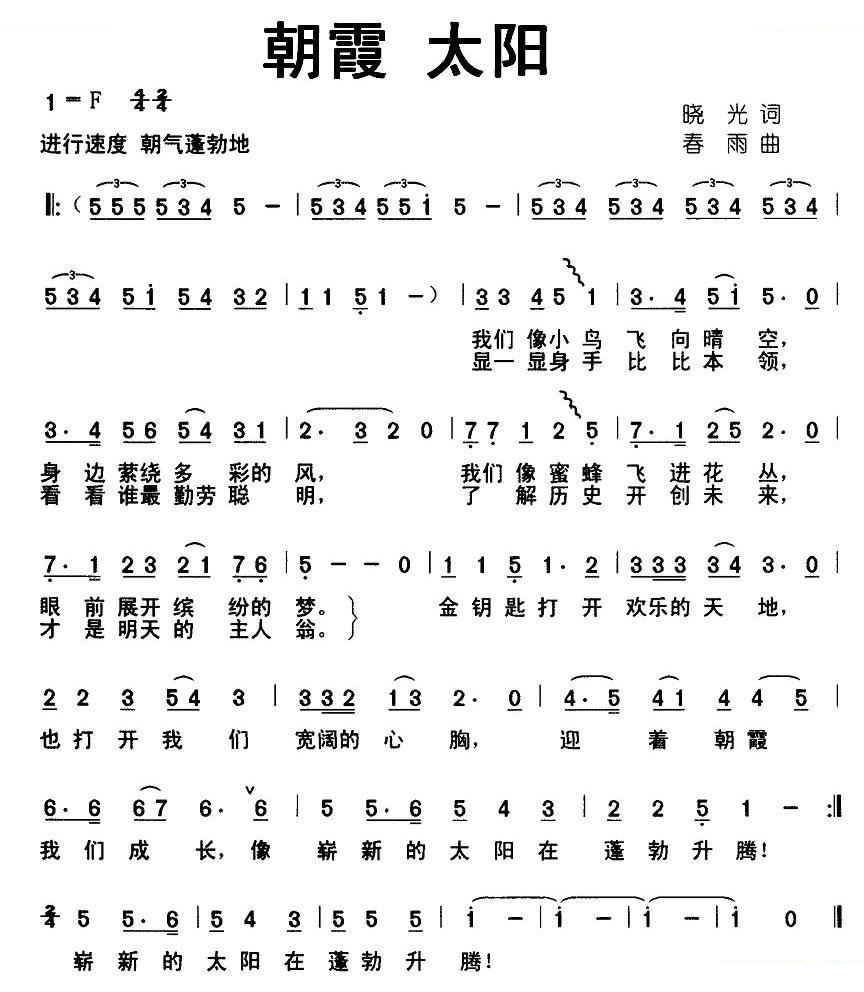 朝霞 太阳
1=F 4/4 2/4
晓 光 词
进行速度 朝气蓬勃地
春 雨 曲
‖:(5 5 5 5 3 4 5 - | 5 3 4 5 5 i 5 - | 5 3 4 5 3 4 5 3 4 5 3 4 |
5 3 4 5 i 5 4 3 2 | 1 1 5 1 - ) | 3 3 4 5 1 | 3 · 4 5 i 5 · 0 |
我们 像小 鸟 飞 向 晴 空,
显一 显身 手 比 比 本 领,
3 · 4 5 6 5 4 3 1 | 2 · 3 2 0 | 7 7 1 2 5 | 7 · 1 2 5 2 · 0 |
身 边 萦绕 多 彩的 风, 我们 像 蜜 蜂 飞 进 花 丛,
看 看 谁最 勤劳 聪 明, 了 解 历 史 开 创 未 来,
7 · 1 2 3 2 1 7 6 | 5 - - 0 | 1 1 5 1 · 2 | 3 3 3 3 4 3 · 0 |
眼 前 展开 缤 纷的 梦。 金 钥 匙 打 开 欢乐的 天 地,
才 是 明天 的 主人 翁。
2 2 3 5 4 3 | 3 3 2 1 3 2 · 0 | 4 · 5 4 1 4 4 5 |
也 打 开 我 们 宽阔的 心 胸, 迎 着 朝 霞
6 · 6 6 7 6 · 6 | 5 5 · 6 5 4 3 | 2 2 5 1 - :‖
我 们 成 长, 像 崭 新 的 太 阳 在 蓬 勃 升 腾!
2/4 5 5 · 6 | 5 4 3 | 5 5 5 | i - | i - | i - | i 0 ‖
崭 新 的 太 阳 在 蓬 勃 升 腾!